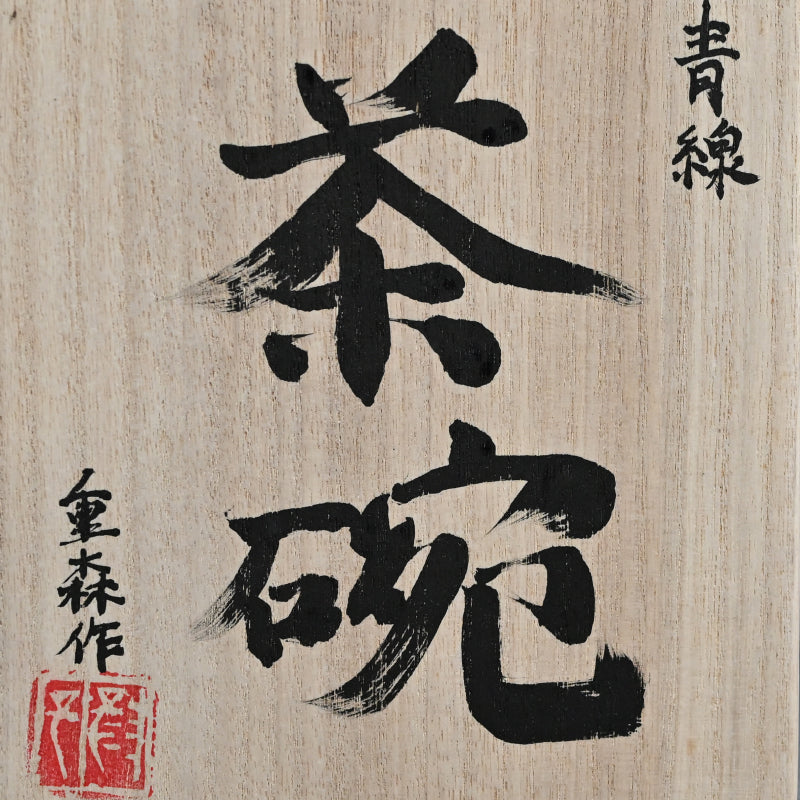 青線
茶碗
重森作